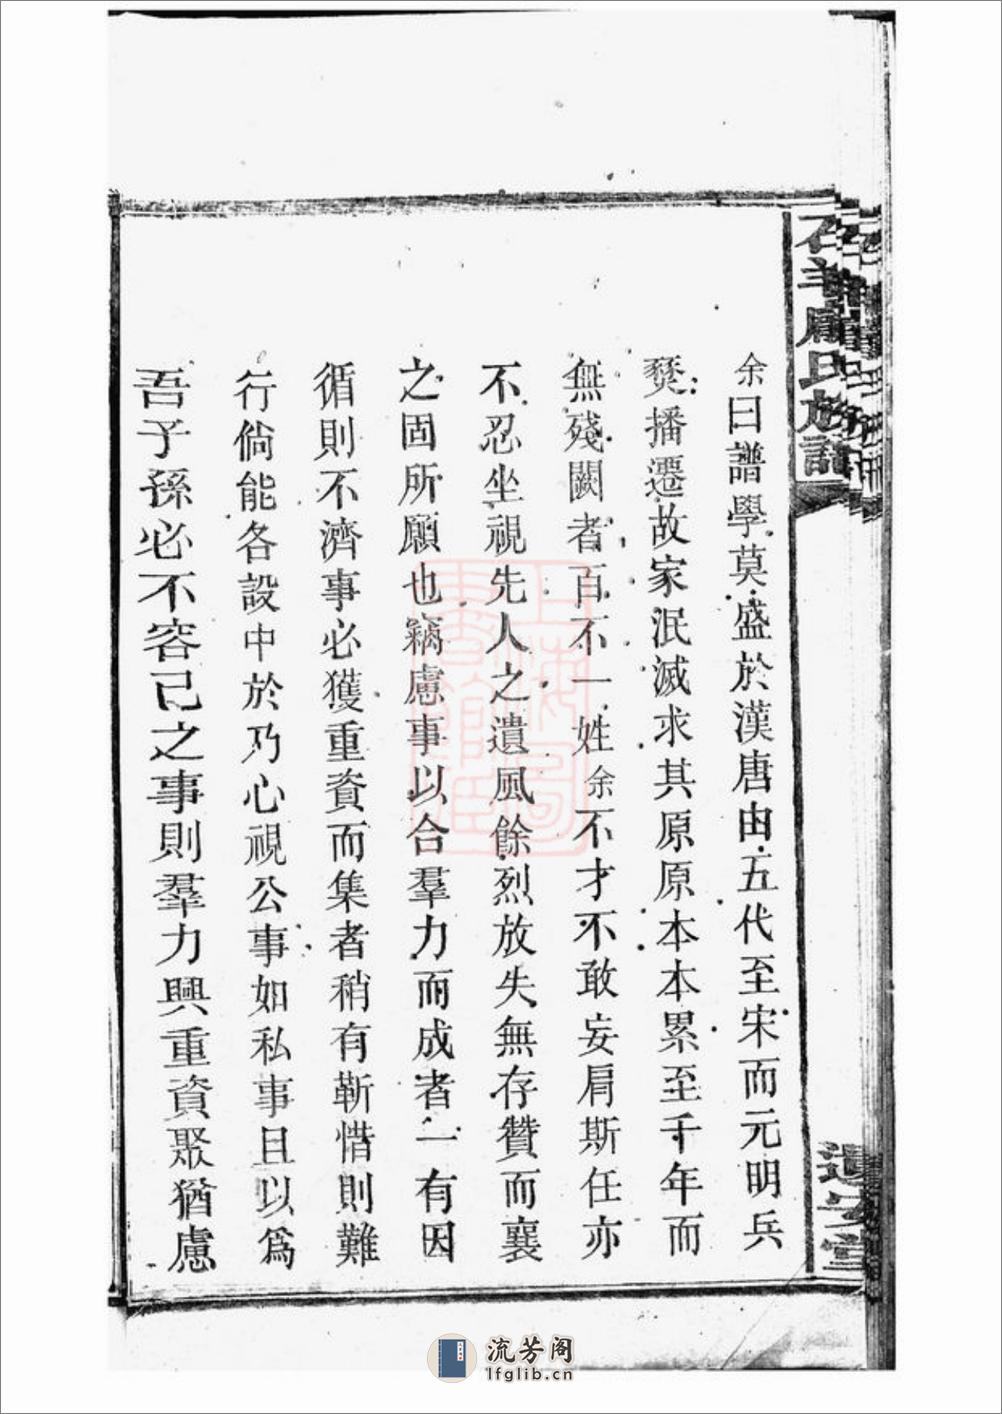 石羊龐氏族譜
遺安堂
余曰譜學莫盛於漢唐由五代至宋而元明兵
燹播遷故家泯滅求其原原本本累至千年而
無殘闕者百不一姓余不才不敢妄肩斯任亦
不忍坐視先人之遺風餘烈放失無存贊而襄
之固所願也竊慮事以合羣力而成者一有因
循則不濟事必獲重資而集者稍有靳惜則難
行倘能各設中於乃心視公事如私事且以爲
吾子孫必不容已之事則羣力興重資聚猶慮
上海圖書館藏
流芳阁
lfglib.cn